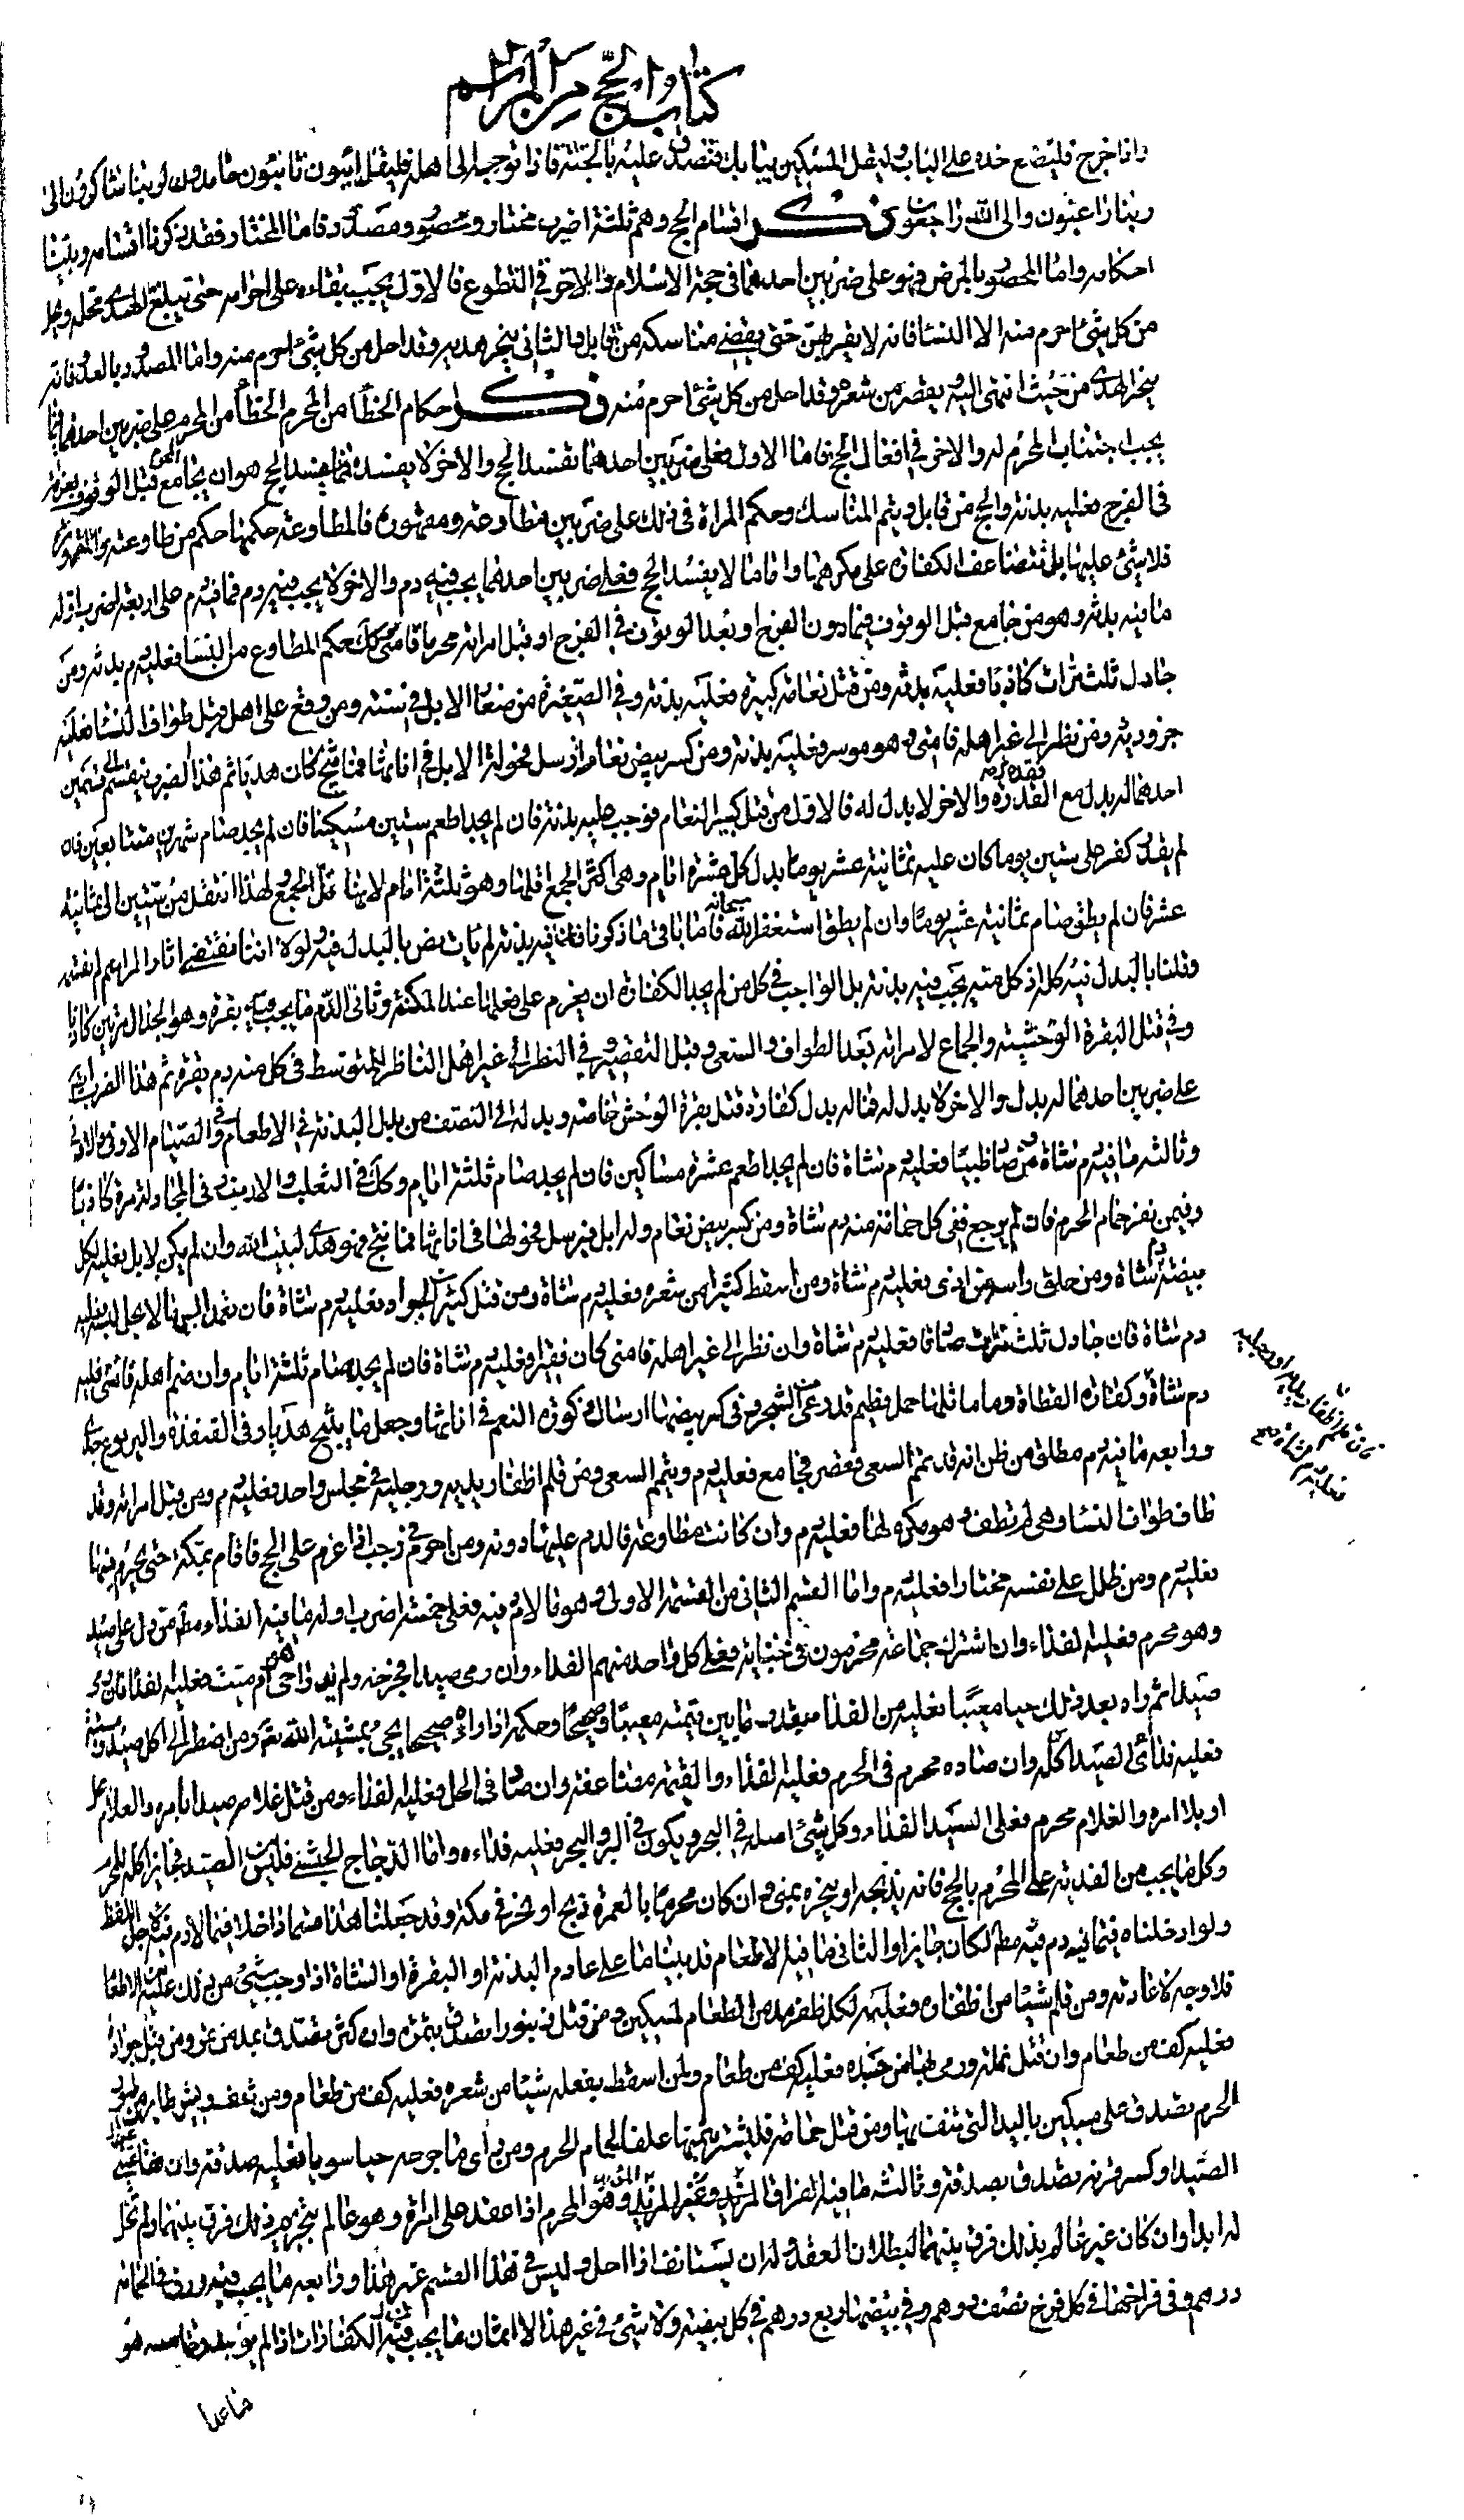 كتاب الحج من المراسم
واذا خرج فليضع خده على الباب وليقل المسكين ببابك فتصدق عليه بالجنة فاذا توجه الى اهله فليقل آئبون تائبون حامدون لربنا شاكرون الى
ربنا راغبون والى الله راجعون ذكر اقسام الحج وهم ثلثة اضرب مختار ومحصور ومصدود فاما المختار فقد ذكرنا اقسامه وبينا
احكامه واما المحصور بالمرض فهو على ضربين احدهما في حجة الاسلام والاخر في التطوع فالاول يجب بقاءه على احرامه حتى يبلغ الهدى محله ويحل
من كل شئ احرم منه الا النساء فانه لا يقربهن حتى يقضى مناسكه من قابل والثاني ينحر هديه وقد احل من كل شئ احرم منه واما المصدود بالعدو فانه
ينحر الهدى من حيث انتهى اليه ويقصر من شعره وقد احل من كل شئ احرم منه ذكر احكام الخطأ من المحرم الخطأ من المحرم على ضربين احدهما
يجب اجتناب المحرم له والاخر في افعال الحج فاما الاول فعلى ضربين احدهما يفسد الحج والاخر لا يفسده فما يفسد الحج هو ان يجامع قبل الوقوف بعرفة
في الفرج فعليه بدنة والحج من قابل ويتم المناسك وحكم المراة في ذلك على ضربين مطاوعة ومقهورة فالمطاوعة حكمها حكم من طاوعته والمقهورة
فلا شئ عليها بل تتضاعف الكفارة على مكرهها واما ما لا يفسد الحج فعلى ضربين احدهما يجب فيه دم والاخر لا يجب فيه دم فما فيه دم على اربعة اضرب اوله
ما فيه بدنة وهو من جامع قبل الوقوف فيما دون الفرج او بعد الوقوف في الفرج او قبل امراته محرما فامنى وكذلك حكم المطاوع من النساء فعليه دم بدنة ومن
جادل ثلث مرات كاذبا فعليه بدنة ومن قتل نعامة كبيرة فعليه بدنة وفي الصغيرة من صغار الابل في سنته ومن وقع على اهله قبل طواف النساء فعليه
جزور ومن نظر الى غير اهله فامنى وهو موسر فعليه بدنة ومن كسر بيض نعام ارسل فحولة الابل في اناثها فما نتج كان هديا ثم هذا الضرب ينقسم الى قسمين
احدهما له بدل مع القدرة والاخر لا بدل له فالاول من قتل كبير النعام فوجب عليه بدنة فان لم يجد اطعم ستين مسكينا فان لم يجد صام شهرين متتابعين فان
لم يقدر كفر على ستين يوما كان عليه ثمانية عشر يوما بدل كل عشرة ايام وهي اكثر الجمع اقلها وهو ثلثة ايام لانها اقل الجمع ولهذا انتقل من ستين الى ثمانية
عشر فان لم يطق صام ثمانية عشر يوما وان لم يطق استغفر الله سبحانه فاما باقي ما ذكرنا فان فيه بدنة لم يات نص بالبدل فيه ولولا اننا نقتضى اثار المراسم
وقلنا بالبدل فيه كله اذ كل منه يجب فيه بدنة بل الواجب في كل من لم يجد الكفارة ان يعزم على فعلها عند المكنة وثاني الدم ما يجب فيه بقرة وهو الجدال مرتين كاذبا
وفي قتل البقرة الوحشية والجماع لامراته بعد الطواف والسعى وقبل التقصير وفي النظر الى غير اهل الناظر المتوسط في كل منه دم بقرة ثم هذا الضرب ايضا
على ضربين احدهما له بدل والاخر لا بدل له فما له بدل كفارة قتل بقرة الوحش خاصة وبدله الى النصف من بدل البدنة في الاطعام وفي الصيام الاوفى والادنى
وثالثه ما فيه دم شاة من صاد ظبيا فعليه دم شاة فان لم يجد اطعم عشرة مساكين فان لم يجد صام ثلثة ايام وكذلك في الثعلب والارنب وفي المجادلة مرة كاذبا
وفيمن نفر حمام الحرم فان لم يرجع ففي كل حمامة منه دم شاة ومن كسر بيض نعام وله ابل فيرسل فحولها في اناثها فما نتج فهو هدى لبيت الله وان لم يكن له ابل فعليه لكل
بيضة دم شاة ومن حلق راسه من اذى فعليه دم شاة ومن اسقط كثيرا من شعره فعليه دم شاة ومن قتل كثير الجراد فعليه دم شاة فان تعمد لبس ما لا يحل لبسه فعليه
دم شاة فان جادل ثلث مرات صادقا فعليه دم شاة وان نظر الى غير اهله فامنى كان فقيرا فعليه دم شاة فان لم يجد صام ثلثة ايام وان ضم اهله فامنى فعليه
دم شاة وكفارة القطاة وما ماثلها حمل فطيم قد رعى من الشجر وفي كسر بيضها ارسال ذكورة الغنم في اناثها وجعل ما ينتج هديا وفي القنفذ واليربوع جدى
ورابعه ما فيه دم مطلق من ظن انه قد تمم السعى فقصر فجامع فعليه دم ويتمم السعى ومن قلم اظفار يديه ورجليه في مجلس واحد فعليه دم ومن قبل امراته وقد
طاف طواف النساء وهي لم تطف وهو مكره لها فعليه دم وان كانت مطاوعة فالدم عليها دونه ومن احرم في رجب اذا عزم على الحج فاقام بمكة حتى يحرم منها
فعليه دم ومن ظلل على نفسه مختارا فعليه دم واما القسم الثاني من القسمة الاولى وهو ما لا دم فيه فعلى خمسة اضرب اوله ما فيه الفداء مطلقا من دل على صيد
وهو محرم فعليه الفداء وان اشترك جماعة محرمون في جنايته فعلى كل واحد منهم الفداء وان رمى صيدا فجرحه ولم يدر احى هو ام ميت فعليه الفداء فان راى
صيدا ثم راه بعد ذلك حيا معيبا فعليه من الفداء بقدر ما بين قيمته معيبا وصحيحا وحكمه اذا راه صحيحا يجئ بمشيئة الله تعالى ومن اضطر الى اكل صيد وميتة
فعليه فداء الصيد اكله وان صاده محرم في الحرم فعليه الفداء والقيمة مضاعفة وان صاد في الحل فعليه الفداء ومن قتل غلامه صيدا بامره والغلام محل
او بلا امره والغلام محرم فعلى السيد الفداء وكل شئ اصله في البحر ويكون في البر والبحر فعليه فداءه واما الدجاج الحبشى فليس من الصيد فجايز اكله للمحرم
وكل ما يجب من الفدية على المحرم بالحج فانه يذبحه او ينحره بمنى وان كان محرما بالعمرة ذبح او نحر في مكة وقد جعلنا هذا قسما داخلا فيما لا دم فيه لاجل اللفظ
ولو ادخلناه فيما فيه دم فيه مطلقا لكان جايزا والثاني ما فيه الاطعام قد بينا ما على عادم البدنة او البقرة او الشاة اذا وجب شئ من ذلك عليه من الاطعام
فلا وجه لاعادته ومن قلم شيئا من اظفاره فعليه لكل ظفر مد من الطعام لمسكين ومن قتل زنبورا تصدق بتمرة وان كثر فتصدق بمد من تمر ومن قتل جرادة
فعليه كف من طعام وان قتل قملة ورمى بها من جسده فعليه كف من طعام وان اسقط بفعله شيئا من شعره فعليه كف من طعام ومن نتف ريش طاير من طيور
الحرم تصدق على مسكين باليد التي نتف بها ومن قتل حمامة فليشتر بثمنها علفا لحمام الحرم ومن راى ما جرحه حيا سويا فعليه صدقة وان فقأ عين
الصيد او كسر قرنه تصدق بصدقة وثالثه ما فيه الفراق المؤبد وغير المؤبد وهو المحرم اذا عقد على امراة وهو عالم بتحريم ذلك فرق بينهما ولم تحل
له ابدا وان كان غير عالم بذلك فرق بينهما لبطلان العقد وله ان يستانف اذا احل وليس في هذا القسم غير هذا ورابعه ما يجب فيه درهم في الحمامة
درهم وفي فراخها في كل فرخ نصف درهم وفي بيضها ربع درهم في كل بيضة ولا شئ في غير هذا الا اثمان ما يجب فيه الكفارات اذا لم يوجد وخامسه هو
فان قلم اظفار يديه او رجليه
فعليه دم شاة